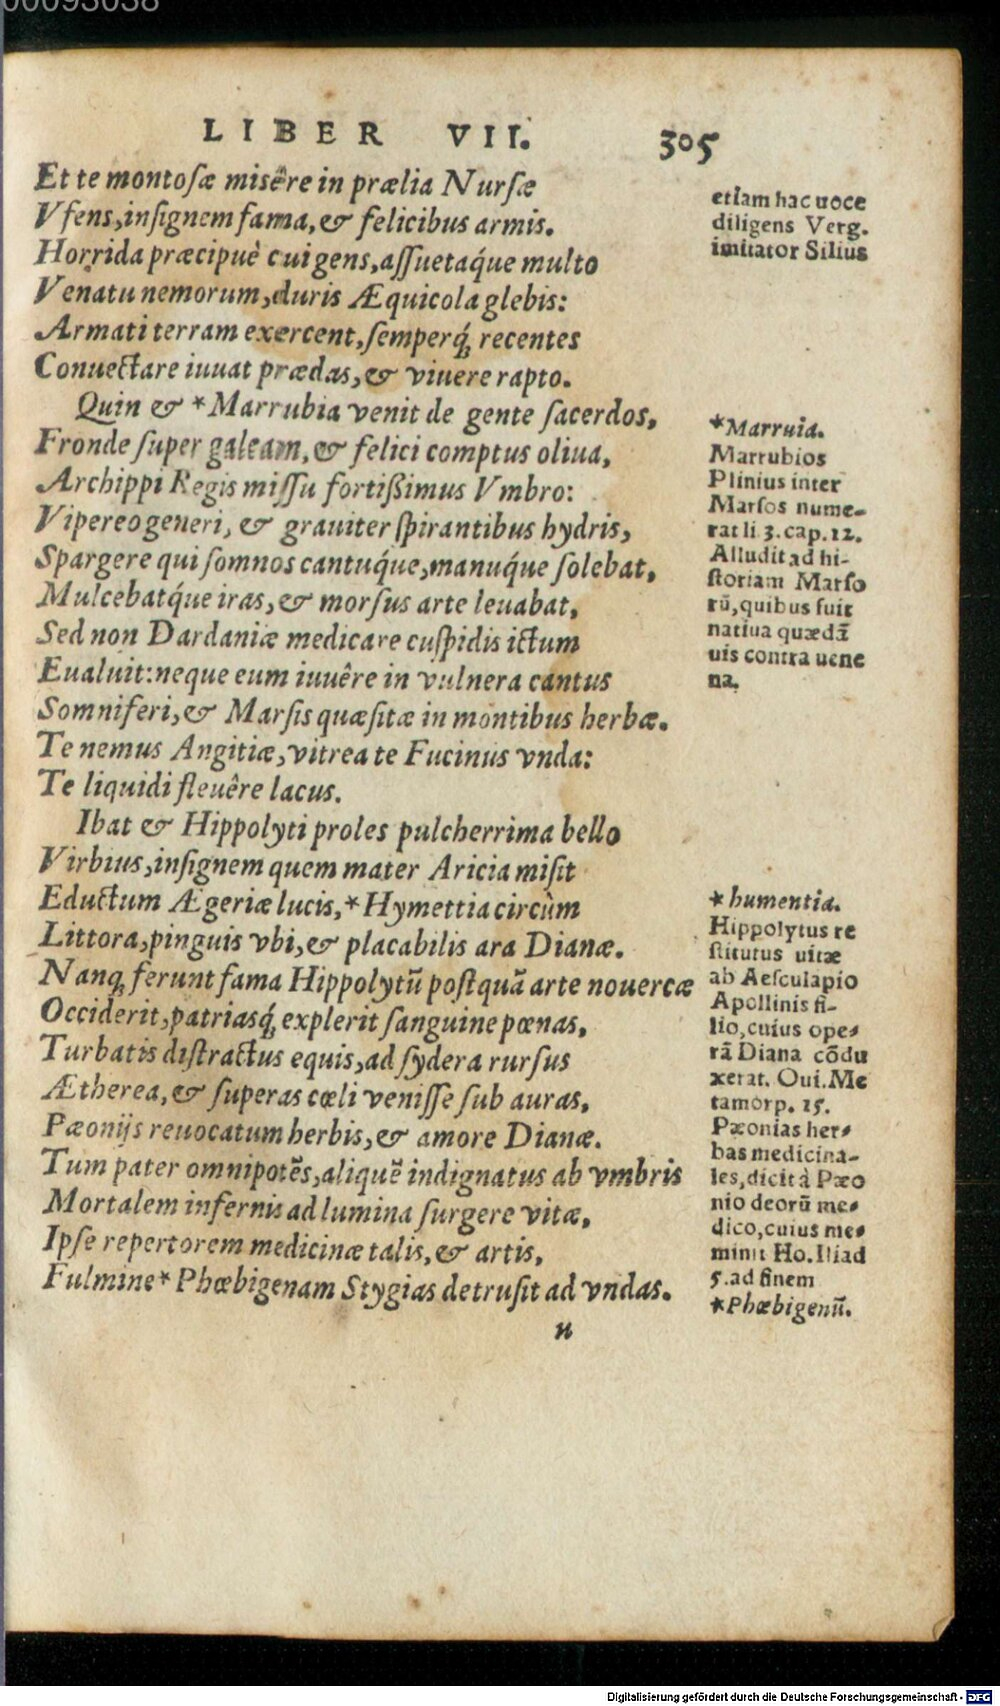 00093038
LIBER VII. 305
Et te montoſæ misêre in prælia Nurſæ
Vfens,inſignem fama,& felicibus armis.
Horrida præcipuè cui gens,aſſuetaq́ue multo
Venatu nemorum,duris Æquicola glebis:
Armati terram exercent,ſemperq́; recentes
Conuectare iuuat prædas,& viuere rapto.
Quin & *Marrubia venit de gente ſacerdos,
Fronde ſuper galeam,& felici comptus oliua,
Archippi Regis miſſu fortißimus Vmbro:
Vipereo generi, & grauiter ſpirantibus hydris,
Spargere qui ſomnos cantuq́ue,manuq́ue ſolebat,
Mulcebatq́ue iras,& morſus arte leuabat,
Sed non Dardaniæ medicare cuſpidis ictum
Eualuit:neque eum iuuêre in vulnera cantus
Somniferi,& Marſis quæſitæ in montibus herbæ.
Te nemus Angitiæ,vitrea te Fucinus vnda:
Te liquidi fleuêre lacus.
Ibat & Hippolyti proles pulcherrima bello
Virbius,inſignem quem mater Aricia miſit
Eductum Ægeriæ lucis,*Hymettia circùm
Littora,pinguis vbi,& placabilis ara Dianæ.
Nanq; ferunt fama Hippolytū poſtquā arte nouercæ
Occiderit,patriasq́; explerit ſanguine pœnas,
Turbatis diſtractus equis,ad ſydera rurſus
Ætherea,& ſuperas cœli veniſſe ſub auras,
Pæonijs reuocatum herbis,& amore Dianæ.
Tum pater omnipotēs,aliquē indignatus ab vmbris
Mortalem infernis ad lumina ſurgere vitæ,
Ipſe repertorem medicinæ talis,& artis,
Fulmine*Phœbigenam Stygias detruſit ad vndas.
u
etiam hac uoce
diligens Verg.
imitator Silius
*Marruia.
Marrubios
Plinius inter
Marſos nume-
rat li 3.cap.12.
Alludit ad hi-
ſtoriam Marſo
rū,quibus fuit
natiua quædā
uis contra uene
na.
*humentia.
Hippolytus re
ſtitutus uitæ
ab Aeſculapio
Apollinis fi-
lio,cuius ope-
rā Diana cōdu
xerat. Oui.Me
tamorp. 15.
Pæonias her-
bas medicina-
les,dicit à Pæo
nio deorū me-
dico,cuius me-
minit Ho.Iliad
5.ad finem
*Phœbigenū.
Digitalisierung gefördert durch die Deutsche Forschungsgemeinschaft - DFG